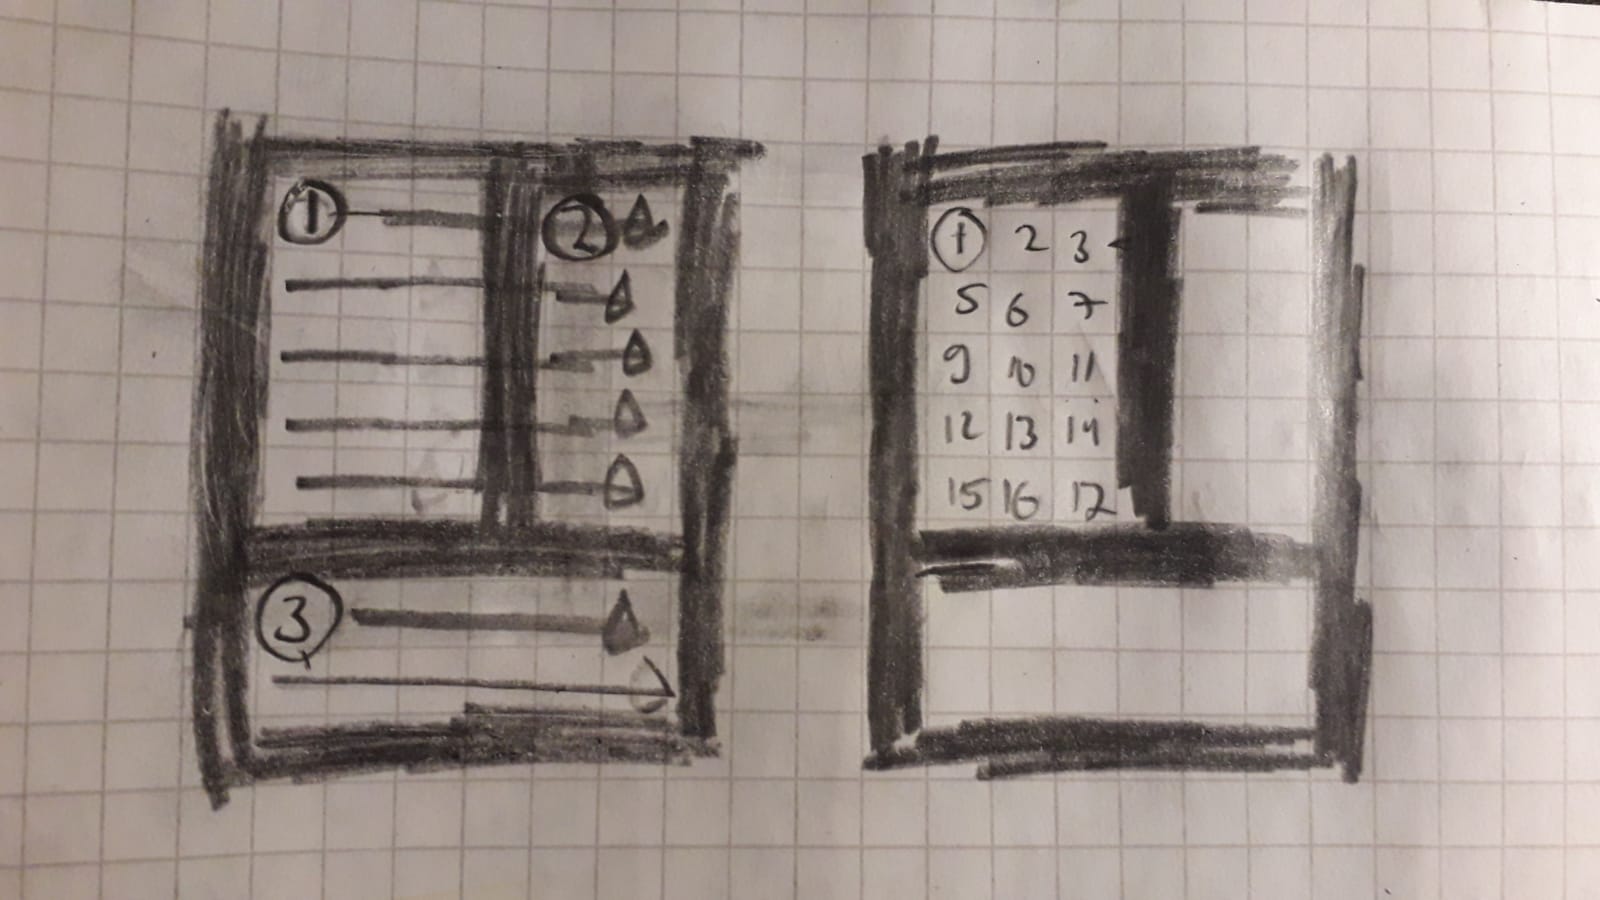 1
2
3
1 2 3
5 6 7
9 10 11
12 13 14
15 16 17